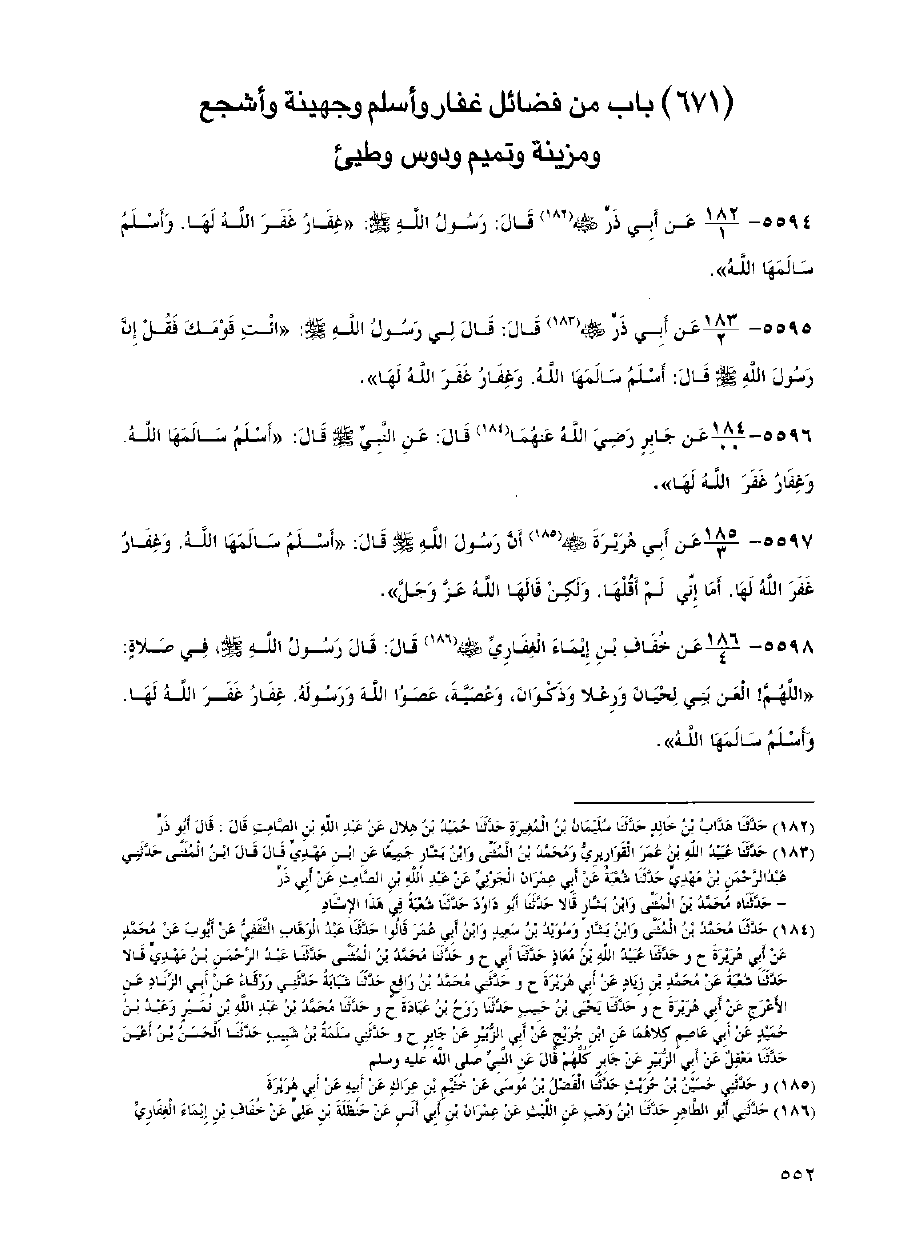 (٦٧١) باب من فضائل غفار وأسلم وجهينة وأشجع
ومزينة وتميم ودوس وطيئ
٥٥٩٤- ١٨٢/١ عَـن أَبِـي ذَرٍّ ﵁(١٨٢) قَـالَ: رَسُـولُ اللَّـهِ ﷺ: «غِفَـارُ غَفَـرَ اللَّـهُ لَهَـا. وَأَسْـلَمُ
سَـالَمَهَا اللَّـهُ».
٥٥٩٥- ١٨٣/٢ عَـن أَبِـي ذَرٍّ ﵁(١٨٣) قَـالَ: قَـالَ لِـي رَسُـولُ اللَّـهِ ﷺ: «ائْـتِ قَوْمَـكَ فَقُـلْ إِنَّ
رَسُولَ اللَّهِ ﷺ قَـالَ: أَسْلَمُ سَـالَمَهَا اللَّهُ. وَغِفَـارُ غَفَـرَ اللَّـهُ لَهَـا».
٥٥٩٦- ١٨٤/٠٠ عَـن جَـابِرٍ رَضِـيَ اللَّـهُ عَنهُمَـا(١٨٤) قَـالَ: عَـنِ النَّبِـيِّ ﷺ قَـالَ: «أَسْـلَمُ سَـالَمَهَا اللَّـهُ.
وَغِفَـارُ غَفَـرَ اللَّـهُ لَهَـا».
٥٥٩٧- ١٨٥/٣ عَـن أَبـي هُرَيْـرَةَ ﵁(١٨٥) أَنَّ رَسُـولَ اللَّـهِ ﷺ قَـالَ: «أَسْـلَمُ سَـالَمَهَا اللَّـهُ. وَغِفَـارُ
غَفَـرَ اللَّهُ لَهَا. أَمَا إِنِّـي لَـمْ أَقُلْهَـا. وَلَكِـنْ قَالَهَـا اللَّـهُ عَـزَّ وَجَـلَّ».
٥٥٩٨- ١٨٦/٤ عَـن خُفَـافِ بْـنِ إِيْمَـاءَ الْغِفَـارِيِّ ﵁(١٨٦) قَـالَ: قَـالَ رَسُـولُ اللَّـهِ ﷺ، فِـي صَـلاةٍ:
«اللَّهُـمَّ! الْعَـن بَنِـي لِحْيَـانَ وَرِعْـلا وَذَكْـوَانَ، وَعُصَيَّـةَ، عَصَـوُا اللَّـهَ وَرَسُـولَهُ. غِفَـارُ غَفَـرَ اللَّـهُ لَهَـا.
وَأَسْـلَمُ سَـالَمَهَا اللَّـهُ».
(١٨٢) حَدَّثَنَا هَدَّابُ بْنُ خَالِدٍ حَدَّثَنَا سُلَيْمَانُ بْنُ الْمُغِيرَةِ حَدَّثَنَا حُمَيْدُ بْنُ هِلَالٍ عَنْ عَبْدِ اللَّهِ بْنِ الصَّامِتِ قَالَ : قَالَ أَبُو ذَرٍّ
(١٨٣) حَدَّثَنَا عُبَيْدُ اللَّهِ بْنُ عُمَرَ الْقَوَارِيرِيُّ وَمُحَمَّدُ بْنُ الْمُثَنَّى وَابْنُ بَشَّارٍ جَمِيعًا عَنِ ابْـنِ مَهْـدِيٍّ قَـالَ قَـالَ ابْـنُ الْمُثَنَّـى حَدَّثَنِـي
عَبْدُالرَّحْمَنِ بْنُ مَهْدِيٍّ حَدَّثَنَا شُعْبَةُ عَنْ أَبِي عِمْرَانَ الْجَوْنِيِّ عَنْ عَبْدِ اللَّهِ بْنِ الصَّامِتِ عَنْ أَبِي ذَرٍّ
– حَدَّثَنَاه مُحَمَّدُ بْنُ الْمُثَنَّى وَابْنُ بَشَّارٍ قَالَا حَدَّثَنَا أَبُو دَاوُدَ حَدَّثَنَا شُعْبَةُ فِي هَذَا الإِسْنَادِ
(١٨٤) حَدَّثَنَا مُحَمَّدُ بْنُ الْمُثَنَّى وَابْنُ بَشَّارٍ وَسُوَيْدُ بْنُ سَعِيدٍ وَابْنُ أَبِي عُمَرَ قَالُوا حَدَّثَنَا عَبْدُ الْوَهَّابِ الثَّقَفِيُّ عَنْ أَيُّوبَ عَنْ مُحَمَّدٍ
عَنْ أَبِي هُرَيْرَةَ ح و حَدَّثَنَا عُبَيْدُ اللَّهِ بْنُ مُعَاذٍ حَدَّثَنَا أَبِي ح و حَدَّثَنَا مُحَمَّدُ بْنُ الْمُثَنَّـى حَدَّثَنَـا عَبْـدُ الرَّحْمَـنِ بْـنُ مَهْـدِيٍّ قَـالا
حَدَّثَنَا شُعْبَةُ عَنْ مُحَمَّدِ بْنِ زِيَادٍ عَنْ أَبِي هُرَيْرَةَ ح و حَدَّثَنِي مُحَمَّدُ بْنُ رَافِعٍ حَدَّثَنَا شَبَابَةُ حَدَّثَنِي وَرْقَاءُ عَـنْ أَبـي الزِّنَـادِ عَـنِ
الأَعْرَجِ عَنْ أَبِي هُرَيْرَةَ ح و حَدَّثَنَا يَحْيَى بْنُ حَبِيبٍ حَدَّثَنَا رَوْحُ بْنُ عُبَادَةَ ح و حَدَّثَنَا مُحَمَّدُ بْنُ عَبْدِ اللَّهِ بْنِ نُمَـيْرٍ وَعَبْـدُ بْـنُ
حُمَيْدٍ عَنْ أَبِي عَاصِمٍ كِلاهُمَا عَنِ ابْنِ جُرَيْجٍ عَنْ أَبِي الزُّبَيْرِ عَنْ جَابِرٍ ح و حَدَّثَنِي سَلَمَةُ بْنُ شَبِيبٍ حَدَّثَنَـا الْحَسَـنُ بْـنُ أَعْيَـنَ
حَدَّثَنَا مَعْقِلٌ عَنْ أَبِي الزُّبَيْرِ عَنْ جَابِرٍ كُلُّهُمْ قَالَ عَنِ النَّبِيِّ صلى الله عليه وسلم
(١٨٥) و حَدَّثَنِي حُسَيْنُ بْنُ حُرَيْثٍ حَدَّثَنَا الْفَضْلُ بْنُ مُوسَى عَنْ خُثَيْمِ بْنِ عِرَاكٍ عَنْ أَبِيهِ عَنْ أَبِي هُرَيْرَةَ
(١٨٦) حَدَّثَنِي أَبُو الطَّاهِرِ حَدَّثَنَا ابْنُ وَهْبٍ عَنِ اللَّيْثِ عَنْ عِمْرَانَ بْنِ أَبِي أَنَسٍ عَنْ حَنْظَلَةَ بْنِ عَلِيٍّ عَنْ خُفَافِ بْنِ إِيْمَاءَ الْغِفَارِيِّ
٥٥٢